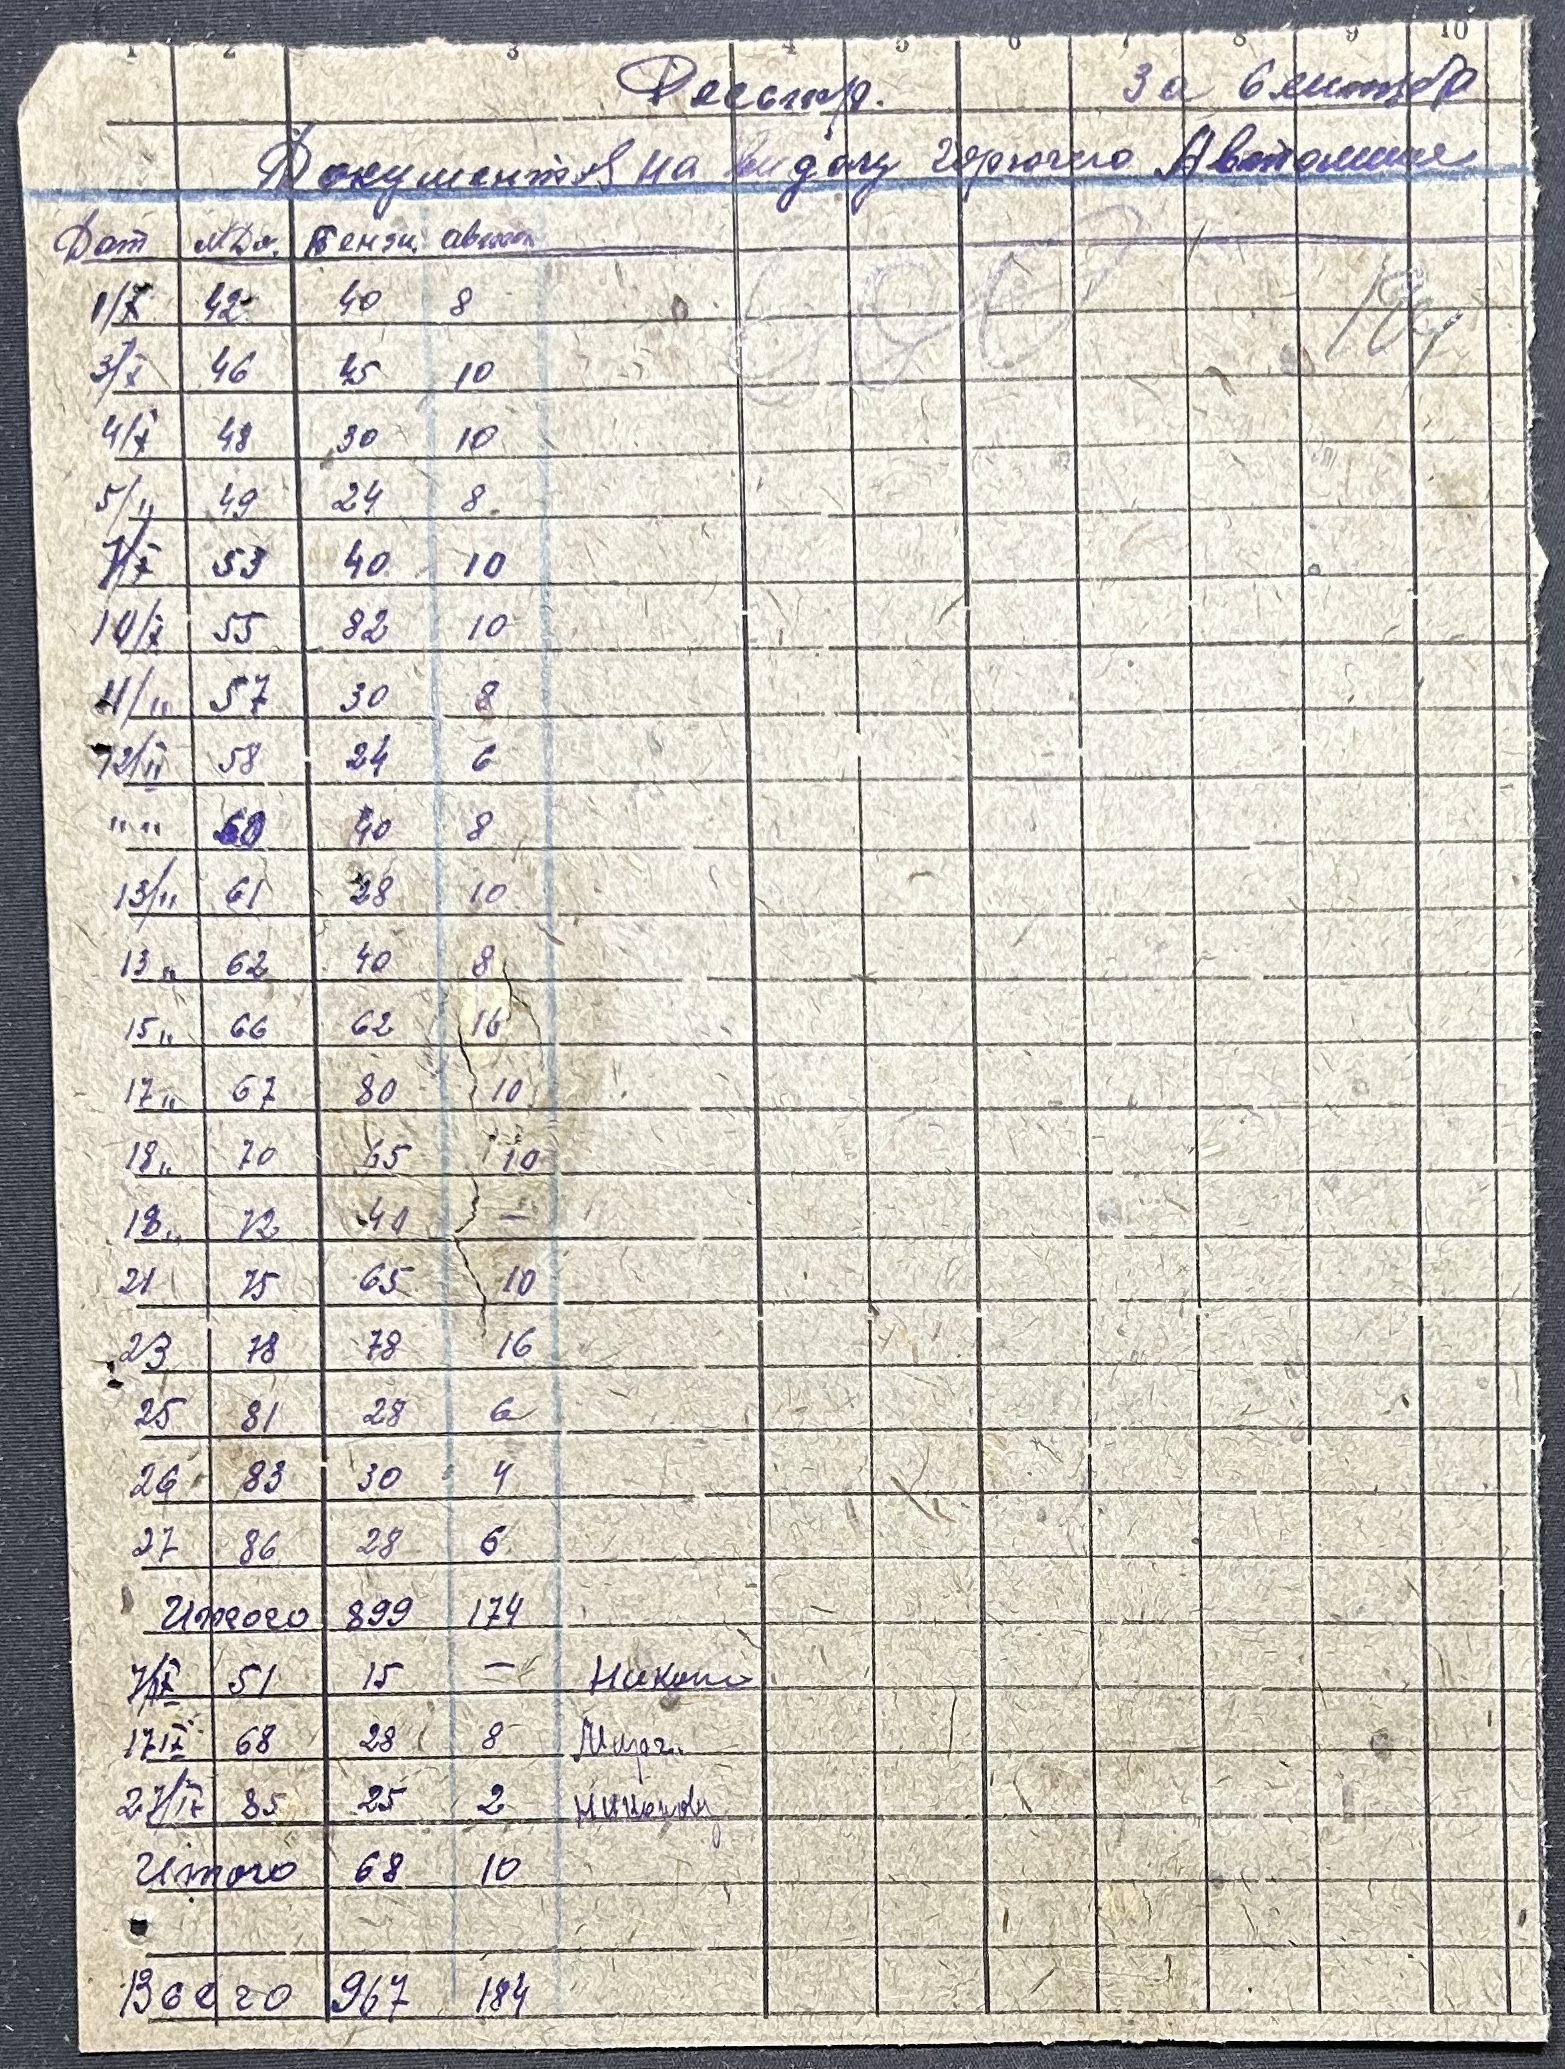 1 2 3 4 5 6 7 8 9 10
Реестр. За Сентябр
Документов на выдачу горючего Автомашине
Дат № До. Бензи. автол
1/IX 42 40 8
3/IX 46 45 10
4/IX 48 30 10
5/" 49 24 8
7/IX 53 40 10
10/IX 55 82 10
11/" 57 30 8
12/" 58 24 6
" " 60 40 8
13/" 61 28 10
13 " 62 40 8
15 " 66 62 16
17 " 67 80 10
18 " 70 65 10
18 " 72 40 —
21 75 65 10
23 78 78 16
25 81 28 6
26 83 30 4
27 86 28 6
Итого 899 174
7/IX 51 15 —
17 IX 68 28 8
27/IX 85 25 2
Итого 68 10
Всего 967 184